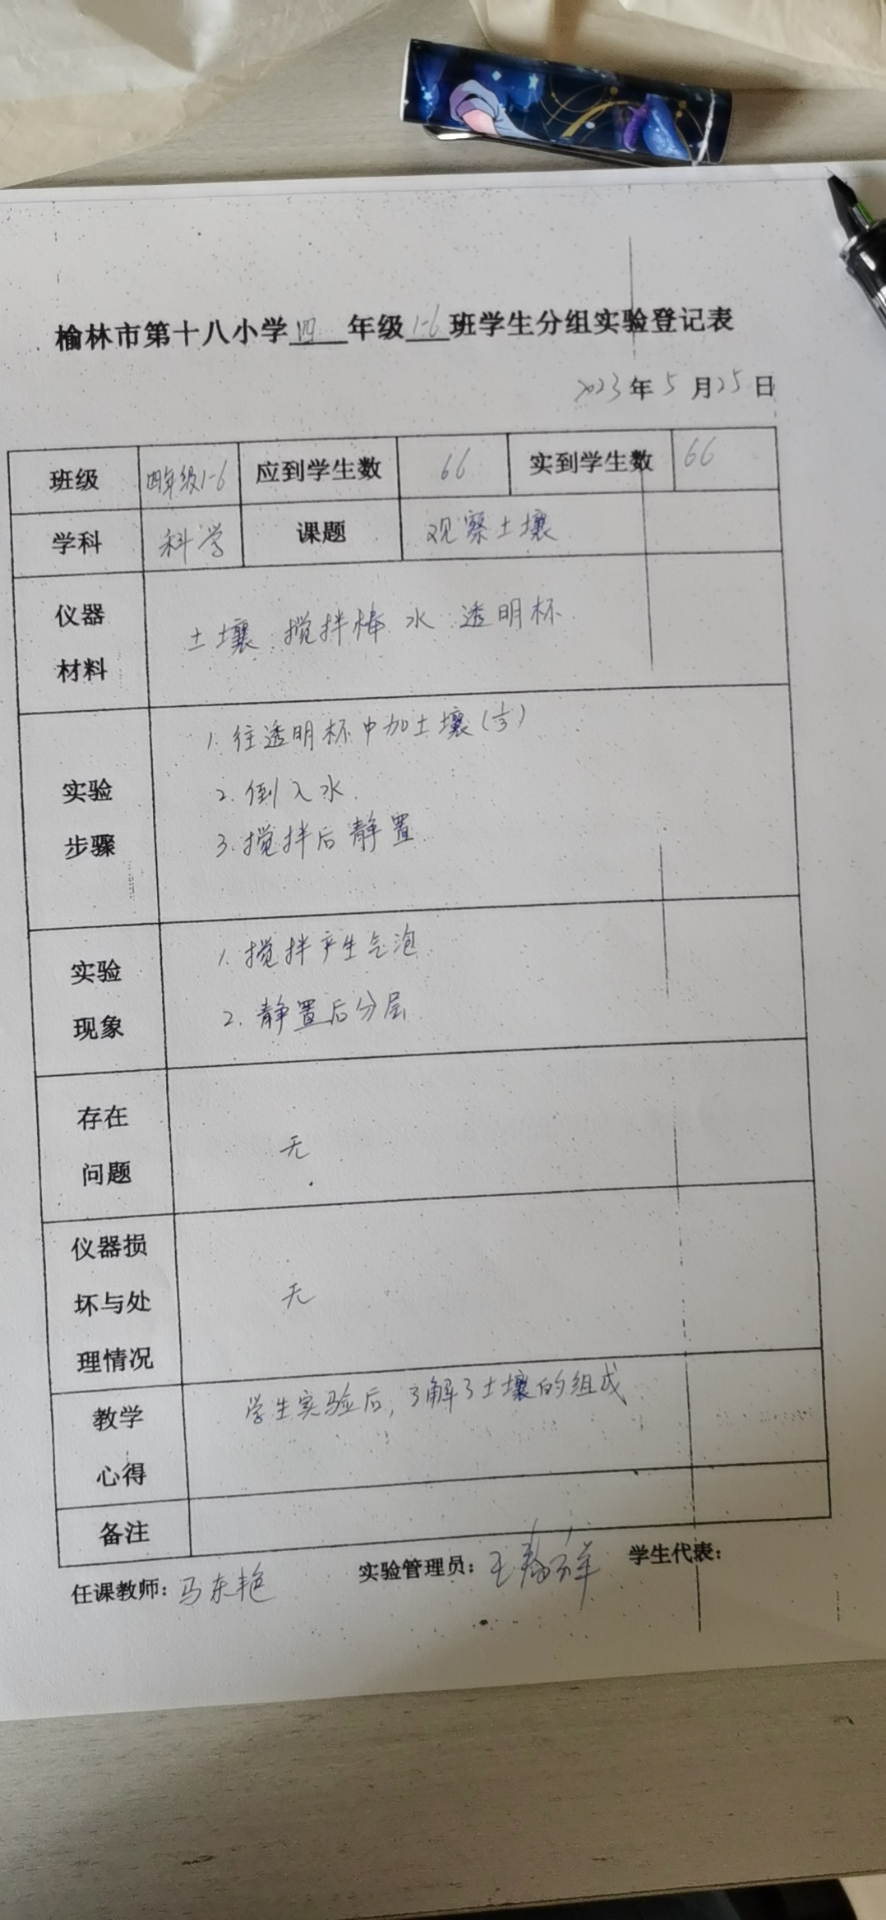 榆林市第十八小学四年级1-6班学生分组实验登记表
2023年5月25日
班级 四年级1-6 应到学生数 66 实到学生数 66
学科 科学 课题 观察土壤
仪器
材料
土壤 搅拌棒 水 透明杯
实验
步骤
1.往透明杯中加土壤(1/3)
2.倒入水
3.搅拌后静置
实验
现象
1.搅拌产生气泡
2.静置后分层
存在
问题
无
仪器损
坏与处
理情况
无
教学
心得
学生实验后,了解了土壤的组成
备注
任课教师:马东艳 实验管理员:王 学生代表: